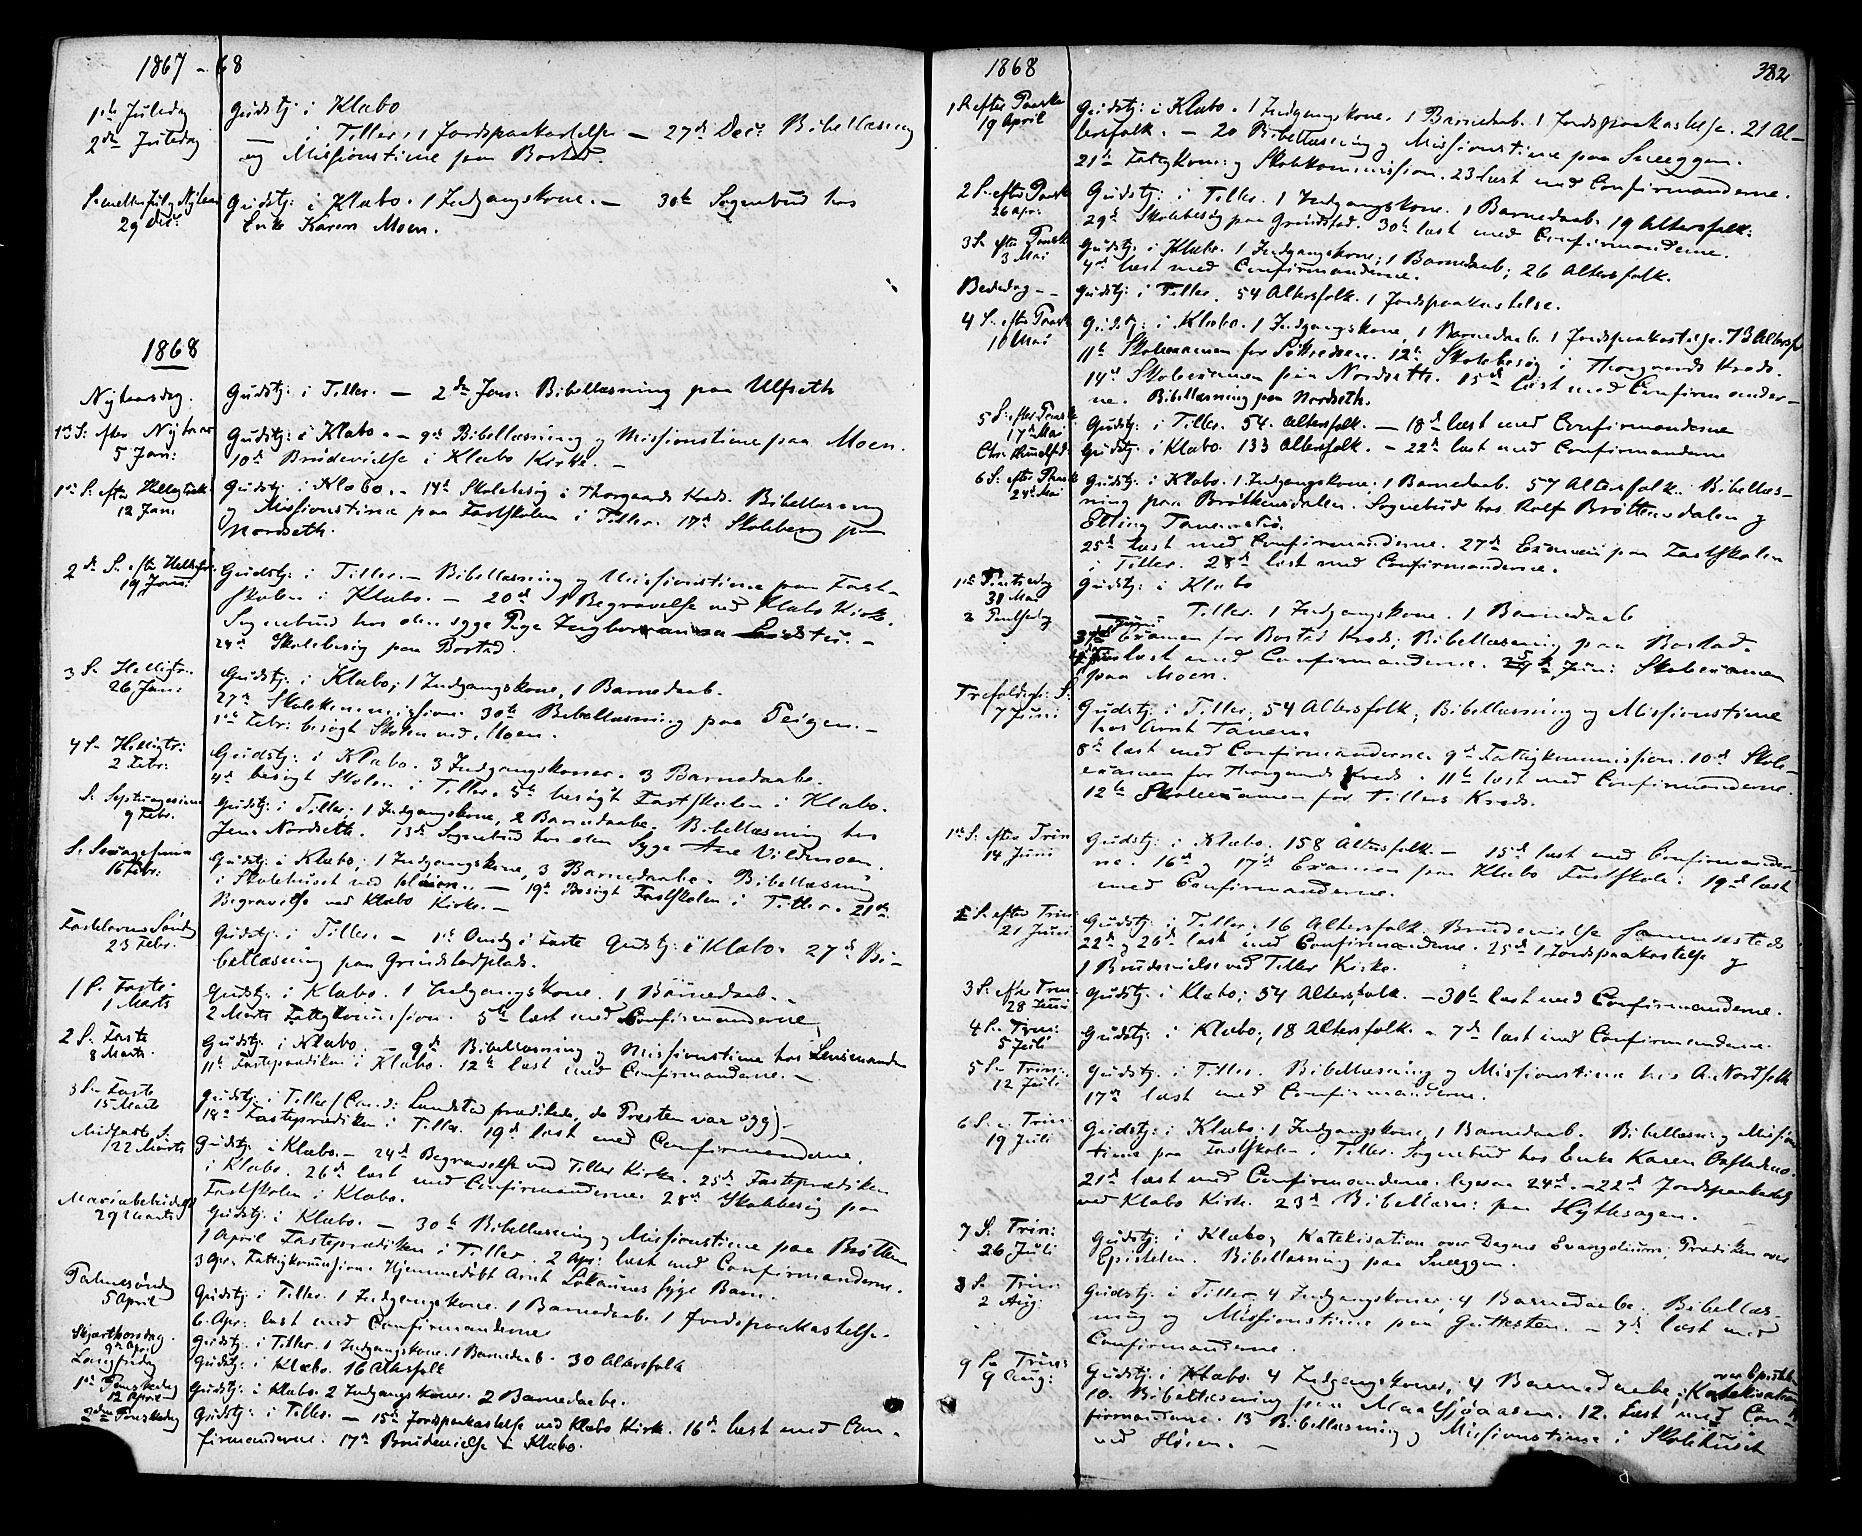 1867-68
1ste Juledag Gudstj: i Klæbo
2den Juledag — i Tiller, 1 Jordspaakastelse — 27de Dec: Bibellæsning
og Missionstime paa Bostad.
S. mellem Jul og Nytaar Gudstj: i Klæbo. 1 Indgangskone. — 30te Sognebud hos
29 Dec: Enke Karen Moen.
1868
Nytaarsdag. Gudstj: i Tiller. — 2den Jan: Bibellæsning paa Ulfseth
1ste S: efter Nytaar Gudstj: i Klæbo. — 9de Bibellæsning og Missionstime paa Moen.
5 Jan: 10de Brudevielse i Klæbo Kirke. —
1ste S. efter Helligtrek: Gudstj: i Klæbo. — 14de Skolebesøg i Thorgaards Kreds. Bibellæsning
12 Jan: og Missionstime paa Fastskolen i Tiller. 17de Skolebesøg paa
Nordseth.
2den S. efter Helligtr: Gudstj: i Tiller. — Bibellæsning og Missionstime paa Fast-
19 Jan: skolen i Klæbo. — 20de 1 Begravelse ved Klæbo Kirke.
Sognebud hos den syge Pige —
24de Skolebesøg paa Bostad.
3 S. Helligtr: Gudstj: i Klæbo; 1 Indgangskone, 1 Barnedaab.
26 Jan: 27de Skolekommission. 30te Bibellæsning paa Teigen. —
1ste Febr: besøgt Skolen ved Moen.
4 S. Helligtr: Gudstj: i Klæbo. 3 Indgangskoner. 3 Barnedaabe.
2 Febr: 4de besøgt Skolen i Tiller. 5te besøgt Fastskolen i Klæbo.
S. Septuagesima Gudstj: i Tiller, 1 Indgangskone, 2 Barnedaabe. Bibellæsning hos
9 Febr. Jens Nordseth. 13de Sognebud hos den syge Ane Vildmoen.
S. Sexagesima Gudstj: i Klæbo; 1 Indgangskone, 3 Barnedaabe. Bibellæsning
16 Febr: i Skolehuset ved — 19de Besøgt Fastskolen i Tiller. 21de
Begravelse ved Klæbo Kirke. —
Fastelavns Søndag Gudstj: i Tiller. — 1ste Onsdg i Faste Gudstj: i Klæbo. 27de Bi-
23 Febr. bellæsning paa Grindstadplads.
1 S. Faste Gudstj: i Klæbo. 1 Indgangskone. 1 Barnedaab. —
1 Marts 2 Marts Fattigkommission. 5te læst med Confirmanderne.
2 S. Faste Gudstj: i Klæbo. — 9de Bibellæsning og Missionstime hos Lensmanden
8 Marts. 11te Fasteprædiken i Klæbo. 12te læst med Confirmanderne. —
3 S. Faste Gudstj: i Tiller (Cand: Lundstad prædikede, da Presten var syg). —
15 Marts 18de Fasteprædiken i Tiller. 19de læst med Confirmanderne.
Midfaste S. Gudstj: i Klæbo. — 24de Begravelse ved Tiller Kirke. 25de Fasteprædiken
22 Marts i Klæbo. 26de læst med Confirmanderne. 28de Skolebesøg paa
Fastskolen i Klæbo.
Mariæ bebudelse Gudstj: i Klæbo. — 30te Bibellæsning og Missionstime paa Brøtten
29 Marts 1 April Fasteprædiken i Tiller. 2 Apr: læst med Confirmanderne.
3 Apr. Fattigkomission. Hjemmedøbt Arnt syge Barn.
Palmesøndag Gudstj: i Tiller. 1 Indgangskone. 1 Barnedaab. 1 Jordspaakastelse.
5 April 6. Apr: læst med Confirmanderne
Skjærthorsdag. Gudstj: i Tiller. 1 Indgangskone. 1 Barnedaab. 30 Altersfolk
9de April
Langfredag Gudstj: i Klæbo. 16 Altersfolk
1ste Paaskedag Gudstj: i Klæbo. 2 Indgangskoner. 2 Barnedaabe.
12 April
2den Paaskedag Gudstj: i Tiller. — 15de Jordspaakastelse ved Klæbo Kirke. 16de læst med Con-
firmanderne. 17de Brudevielse i Klæbo.
1868
382
1 S. efter Paaske Gudstj: i Klæbo. 1 Indgangskone. 1 Barnedaab. 1 Jordspaakastelse. 21 Al-
19 April tersfolk. — 20 Bibellæsning og Missionstime paa Sneeggen.
21de Fattigkom: og Skolekommission. 23 læst med Confirmanderne.
2 S. efter Paaske Gudstj: i Tiller. 1 Indgangskone. 1 Barnedaab. 19 Altersfolk.
26 Apr: 29de Skolebesøg paa Grindstad. 30te læst med Confirmanderne.
3 S. efter Paaske Gudstj: i Klæbo. 1 Indgangskone; 1 Barnedaab; 26 Altersfolk.
3 Mai 4de læst med Confirmanderne.
Bededag — Gudstj: i Tiller. 54 Altersfolk. 1 Jordspaakastelse.
4 S. efter Paaske Gudstj: i Klæbo. 1 Indgangskone, 1 Barnedaab. 1 Jordspaakastelse. 73 Altersf
10 Mai 11te Skoleexamen for 12te Skolebesøg i Thorgaards Kreds.
14de Skoleexamen paa Nordseth. 15de læst med Confirmander-
ne. Bibellæsning paa Nordseth.
5 S. efter Paaske Gudstj: i Tiller. 54. Altersfolk. — 18de læst med Confirmanderne
17de Mai
Chr. Himelfd. Gudstj: i Klæbo. 133 Altersfolk. — 22de læst med Confirmanderne
6 S. efter Paaske Gudstj: i Klæbo. 1 Indgangskone. 1 Barnedaab. 57 Altersfolk. Bibellæs-
24de Mai ning paa Brøttemsdalen. Sognebud hos Rolf Brøttemsdalen og
Elling
25de læst med Confirmanderne. 27de Examen paa Fastskolen
i Tiller. 28de læst med Confirmanderne.
1ste Pintsedag Gudstj: i Klæbo
31 Mai
2 Pintsedag — Tiller. 1 Indgangskone. 1 Barnedaab
Juni
3de Examen for Bostad Kreds; Bibellæsning paa Bostad.
4de læst med Confirmanderne. 5te Juni Skoleexamen
paa Moen.
Trefoldigh: S: Gudstj: i Tiller, 54 Altersfolk; Bibellæsning og Missionstime
7 Juni hos Arnt Tanem.
8de læst med Confirmanderne 9de Fattigkommission. 10de Skole-
examen for Thorgaards Kreds. 11te læst med Confirmanderne.
12te Skoleexamen for Tillers Kreds.
1ste S: efter Trin Gudstj: i Klæbo. 158 Altersfolk. — 15de læst med Confirmander-
14 Juni ne. 16de og 17de Examen paa Klæbo Fastskole. 19de læst
med Confirmanderne.
2 S. efter Trin: Gudstj: i Tiller; 16 Altersfolk. Brudevielse sammesteds.
21 Juni 22de og 26de læst med Confirmanderne. 25de 1 Jordspaakastelse og
1 Brudevielse ved Tiller Kirke.
3 S. efter Trin: Gudstj: i Klæbo; 54 Altersfolk. — 30te læst med Confirmanderne.
28 Juni
4 S. Trin: Gudstj: i Klæbo; 18 Altersfolk. — 7de læst med Confirmanderne.
5 Juli
5 S. Trin: Gudstj: i Tiller. Bibellæsning og Missionstime hos A. Nordseth
12 Juli 17de læst med Confirmanderne.
6 S. e. Trin: Gudstj: i Klæbo; 1 Indgangskone, 1 Barnedaab. Bibellæsning og Missions
19 Juli time paa Fastskolen i Tiller. Sognebud hos Enke Karen
21de læst med Confirmanderne. ligesaa 24de. — 22de Jordspaakastelse
ved Klæbo Kirke. 23de Bibellæsn: paa
7 S. Trin: Gudstj: i Klæbo, Katekisation over Dagens Evangelium; Prædiken over
26 Juli Epistelen. Bibellæsning paa Sneeggen.
8 S. Trin: Gudstj: i Tiller, 4 Indgangskoner; 4 Barnedaabe. Bibellæs-
2 Aug: ning og Missionstime paa — 7de læst med
Confirmanderne.
9 S. Trin: Gudstj: i Klæbo. 4 Indgangskoner; 4 Barnedaabe; Katekisation over Epistelen
9 Aug: 10. Bibellæsning paa 12. Læst med Con-
firmanderne. 13 Bibellæsning og Missionstime i Skolehuset
ved —